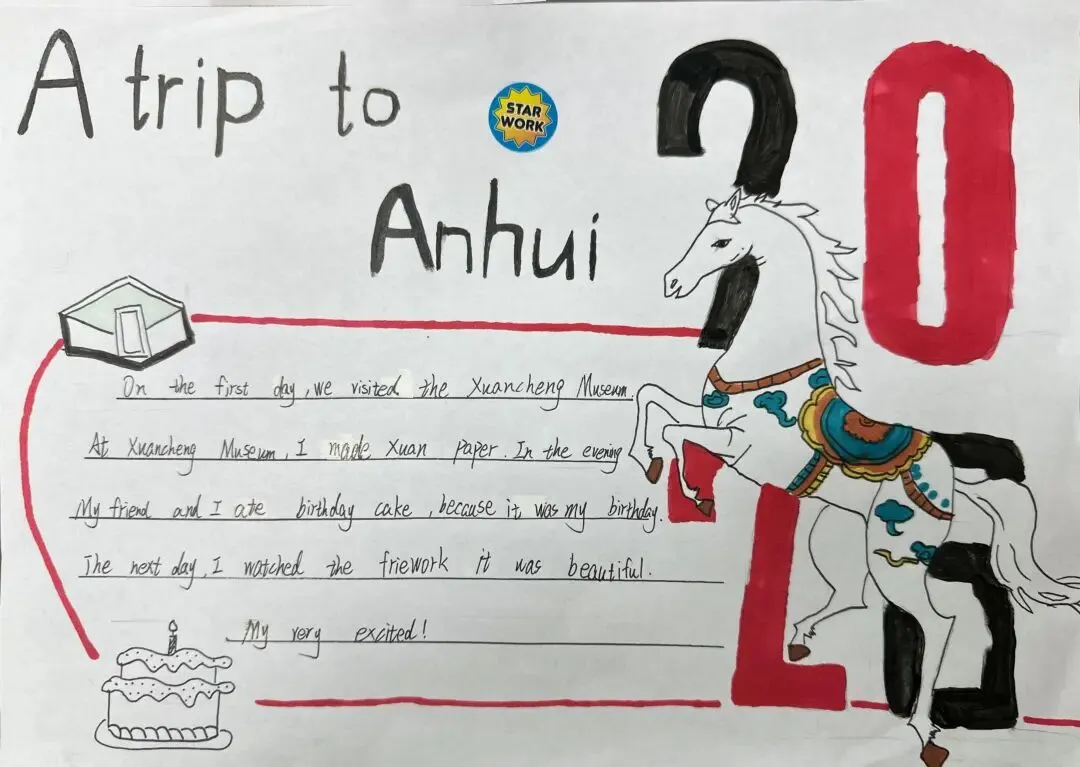 A trip to
STAR
WORK
Anhui
20
26
On the first day, we visited the Xuancheng Museum.
At Xuancheng Museum, I made Xuan paper. In the evening
My friend and I ate birthday cake, because it was my birthday.
The next day, I watched the friework it was beautiful.
My very excited!